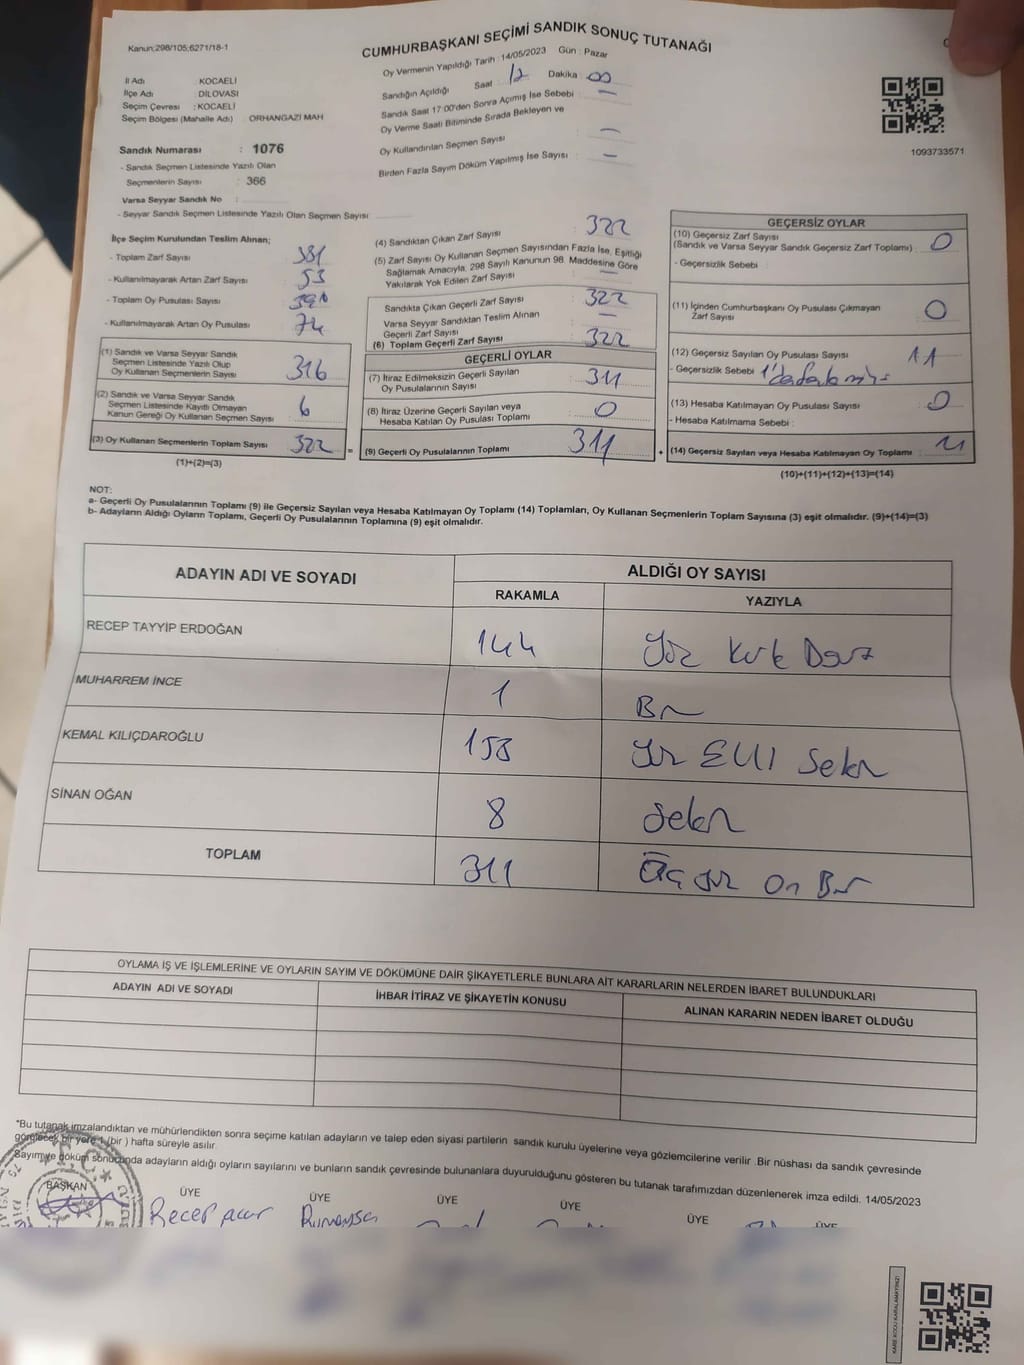 Kanun;298/105;6271/18-1
CUMHURBAŞKANI SEÇİMİ SANDIK SONUÇ TUTANAĞI
Oy Vermenin Yapıldığı Tarih : 14/05/2023 Gün : Pazar
İl Adı : KOCAELİ
İlçe Adı : DİLOVASI
Seçim Çevresi : KOCAELİ
Seçim Bölgesi (Mahalle Adı) : ORHANGAZİ MAH
Sandık Numarası : 1076
- Sandık Seçmen Listesinde Yazılı Olan
Seçmenlerin Sayısı : 366
Varsa Seyyar Sandık No
- Seyyar Sandık Seçmen Listesinde Yazılı Olan Seçmen Sayısı
Sandığın Açıldığı Saat : 12 Dakika : 00
Sandık Saat 17:00'den Sonra Açımış İse Sebebi : —
Oy Verme Saati Bitiminde Sırada Bekleyen ve
Oy Kullandırılan Seçmen Sayısı : —
Birden Fazla Sayım Döküm Yapılmış İse Sayısı : —
1093733571
İlçe Seçim Kurulundan Teslim Alınan;
- Toplam Zarf Sayısı : 381
- Kullanılmayarak Artan Zarf Sayısı : 53
- Toplam Oy Pusulası Sayısı
- Kullanılmayarak Artan Oy Pusulası : 74
(1) Sandık ve Varsa Seyyar Sandık
Seçmen Listesinde Yazılı Olup
Oy Kullanan Seçmenlerin Sayısı : 316
(2) Sandık ve Varsa Seyyar Sandık
Seçmen Listesinde Kayıtlı Olmayan
Kanun Gereği Oy Kullanan Seçmen Sayısı : 6
(3) Oy Kullanan Seçmenlerin Toplam Sayısı : 322 =
(1)+(2)=(3)
(4) Sandıktan Çıkan Zarf Sayısı : 322
(5) Zarf Sayısı Oy Kullanan Seçmen Sayısından Fazla İse, Eşitliği
Sağlamak Amacıyla, 298 Sayılı Kanunun 98. Maddesine Göre
Yakılarak Yok Edilen Zarf Sayısı : —
Sandıkta Çıkan Geçerli Zarf Sayısı : 322
Varsa Seyyar Sandıktan Teslim Alınan
Geçerli Zarf Sayısı : —
(6) Toplam Geçerli Zarf Sayısı : 322
GEÇERLİ OYLAR
(7) İtiraz Edilmeksizin Geçerli Sayılan
Oy Pusulalarının Sayısı : 311
(8) İtiraz Üzerine Geçerli Sayılan veya
Hesaba Katılan Oy Pusulası Toplamı : 0
(9) Geçerli Oy Pusulalarının Toplamı : 311 +
GEÇERSİZ OYLAR
(10) Geçersiz Zarf Sayısı
(Sandık ve Varsa Seyyar Sandık Geçersiz Zarf Toplamı) : 0
- Geçersizlik Sebebi :
(11) İçinden Cumhurbaşkanı Oy Pusulası Çıkmayan
Zarf Sayısı : 0
(12) Geçersiz Sayılan Oy Pusulası Sayısı : 11
- Geçersizlik Sebebi
(13) Hesaba Katılmayan Oy Pusulası Sayısı : 0
- Hesaba Katılmama Sebebi :
(14) Geçersiz Sayılan veya Hesaba Katılmayan Oy Toplamı : 11
(10)+(11)+(12)+(13)=(14)
NOT:
a- Geçerli Oy Pusulalarının Toplamı (9) ile Geçersiz Sayılan veya Hesaba Katılmayan Oy Toplamı (14) Toplamları, Oy Kullanan Seçmenlerin Toplam Sayısına (3) eşit olmalıdır. (9)+(14)=(3)
b- Adayların Aldığı Oyların Toplamı, Geçerli Oy Pusulalarının Toplamına (9) eşit olmalıdır.
ADAYIN ADI VE SOYADI ALDIĞI OY SAYISI
RAKAMLA YAZIYLA
RECEP TAYYİP ERDOĞAN 144 Yüz Kırk Dört
MUHARREM İNCE 1 Bir
KEMAL KILIÇDAROĞLU 158 Yüz Elli Sekiz
SİNAN OĞAN 8 Sekiz
TOPLAM 311 Üç yüz On Bir
OYLAMA İŞ VE İŞLEMLERİNE VE OYLARIN SAYIM VE DÖKÜMÜNE DAİR ŞİKAYETLERLE BUNLARA AİT KARARLARIN NELERDEN İBARET BULUNDUKLARI
ADAYIN ADI VE SOYADI İHBAR İTİRAZ VE ŞİKAYETİN KONUSU ALINAN KARARIN NEDEN İBARET OLDUĞU
*Bu tutanak imzalandıktan ve mühürlendikten sonra seçime katılan adayların ve talep eden siyasi partilerin sandık kurulu üyelerine veya gözlemcilerine verilir .Bir nüshası da sandık çevresinde
görülecek bir yere 1 (bir ) hafta süreyle asılır.
Sayım ve döküm sonucunda adayların aldığı oyların sayılarını ve bunların sandık çevresinde bulunanlara duyurulduğunu gösteren bu tutanak tarafımızdan düzenlenerek imza edildi. 14/05/2023
BAŞKAN ÜYE ÜYE ÜYE ÜYE ÜYE ÜYE
Recep acar Rumeysa
KARE KODU KARALAMAYINIZ!